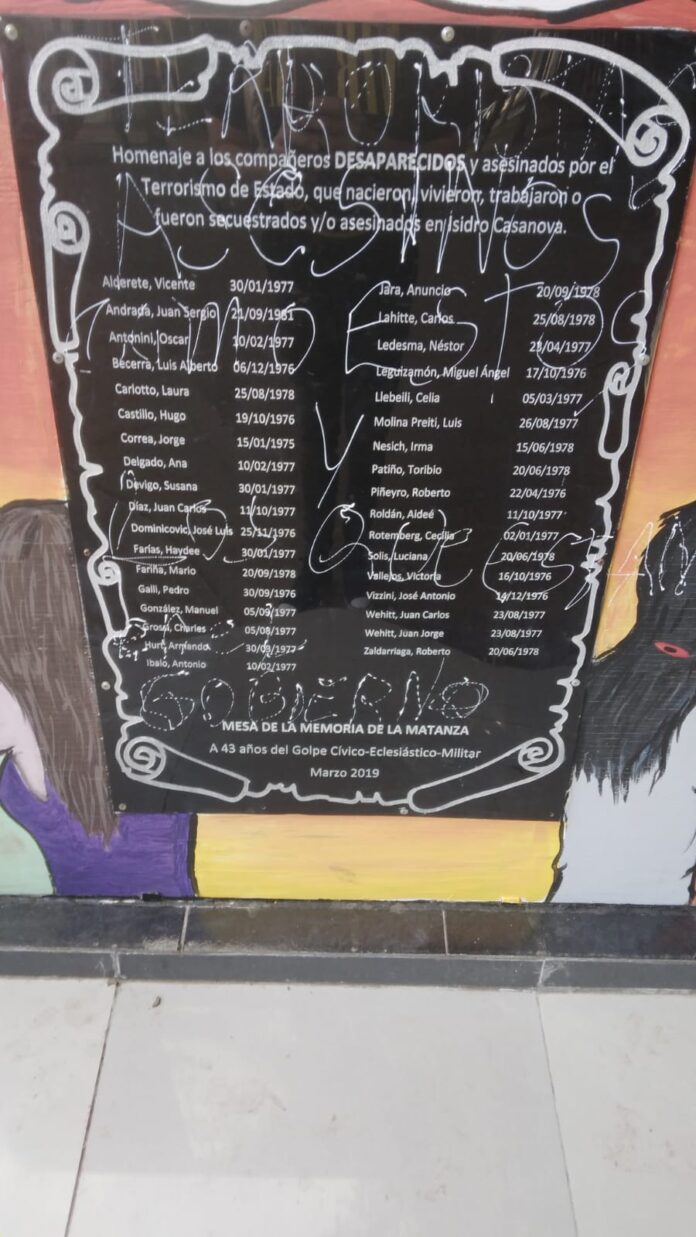 Homenaje a los compañeros DESAPARECIDOS y asesinados por el
Terrorismo de Estado, que nacieron, vivieron, trabajaron o
fueron secuestrados y/o asesinados en Isidro Casanova.
Alderete, Vicente 30/01/1977
Andrada, Juan Sergio 21/09/1981
Antonini, Oscar 10/02/1977
Becerra, Luis Alberto 06/12/1976
Carlotto, Laura 25/08/1978
Castillo, Hugo 19/10/1976
Correa, Jorge 15/01/1975
Delgado, Ana 10/02/1977
Devigo, Susana 30/01/1977
Díaz, Juan Carlos 11/10/1977
Dominicovic, José Luis 25/11/1976
Farías, Haydee 30/01/1977
Fariña, Mario 20/09/1978
Galli, Pedro 30/09/1976
González, Manuel 05/09/1977
Grossi, Charles 05/08/1977
Hurt, Armando 30/03/1977
Ibalo, Antonio 10/02/1977
Jara, Anuncio 20/09/1978
Lahitte, Carlos 25/08/1978
Ledesma, Néstor 23/04/1977
Leguizamón, Miguel Ángel 17/10/1976
Llebeili, Celia 05/03/1977
Molina Preiti, Luis 26/08/1977
Nesich, Irma 15/06/1978
Patiño, Toribio 20/06/1978
Piñeyro, Roberto 22/04/1976
Roldán, Aideé 11/10/1977
Rotemberg, Cecilia 02/01/1977
Solis, Luciana 20/06/1978
Vallejos, Victoria 16/10/1976
Vizzini, José Antonio 14/12/1976
Wehitt, Juan Carlos 23/08/1977
Wehitt, Juan Jorge 23/08/1977
Zaldarriaga, Roberto 20/06/1978
MESA DE LA MEMORIA DE LA MATANZA
A 43 años del Golpe Cívico-Eclesiástico-Militar
Marzo 2019
Y
QUE ESTAN
GOBIERNO